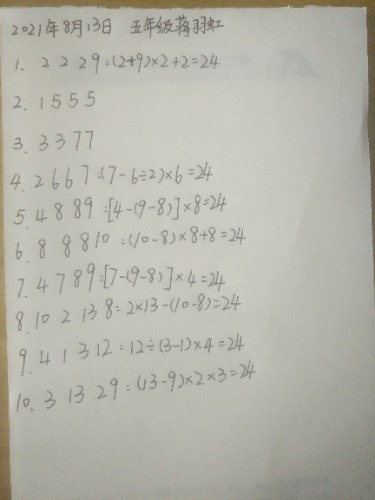 2021年8月13日 五年级蒋羽虹
1. 2 2 2 9:(2+9)×2+2=24
2. 1 5 5 5
3. 3 3 7 7
4. 2 6 6 7:(7-6÷2)×6=24
5. 4 8 8 9:[4-(9-8)]×8=24
6. 8 8 8 10:(10-8)×8+8=24
7. 4 7 8 9:[7-(9-8)]×4=24
8. 10 2 13 8:2×13-(10-8)=24
9. 4 1 3 12:12÷(3-1)×4=24
10. 3 13 2 9:(13-9)×2×3=24